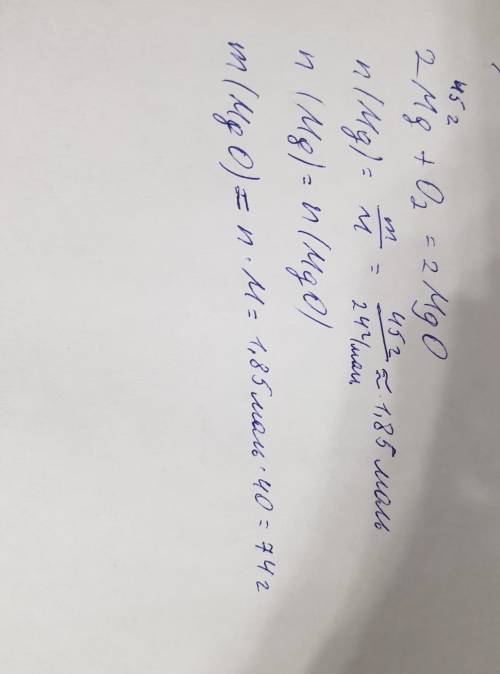 45 г
2 Mg + O₂ = 2 MgO
n(Mg) = m/M = 45 г/24 г/моль ≈ 1,85 моль
n (Mg) = n(MgO)
m(MgO) = n · M = 1,85 моль · 40 = 74 г